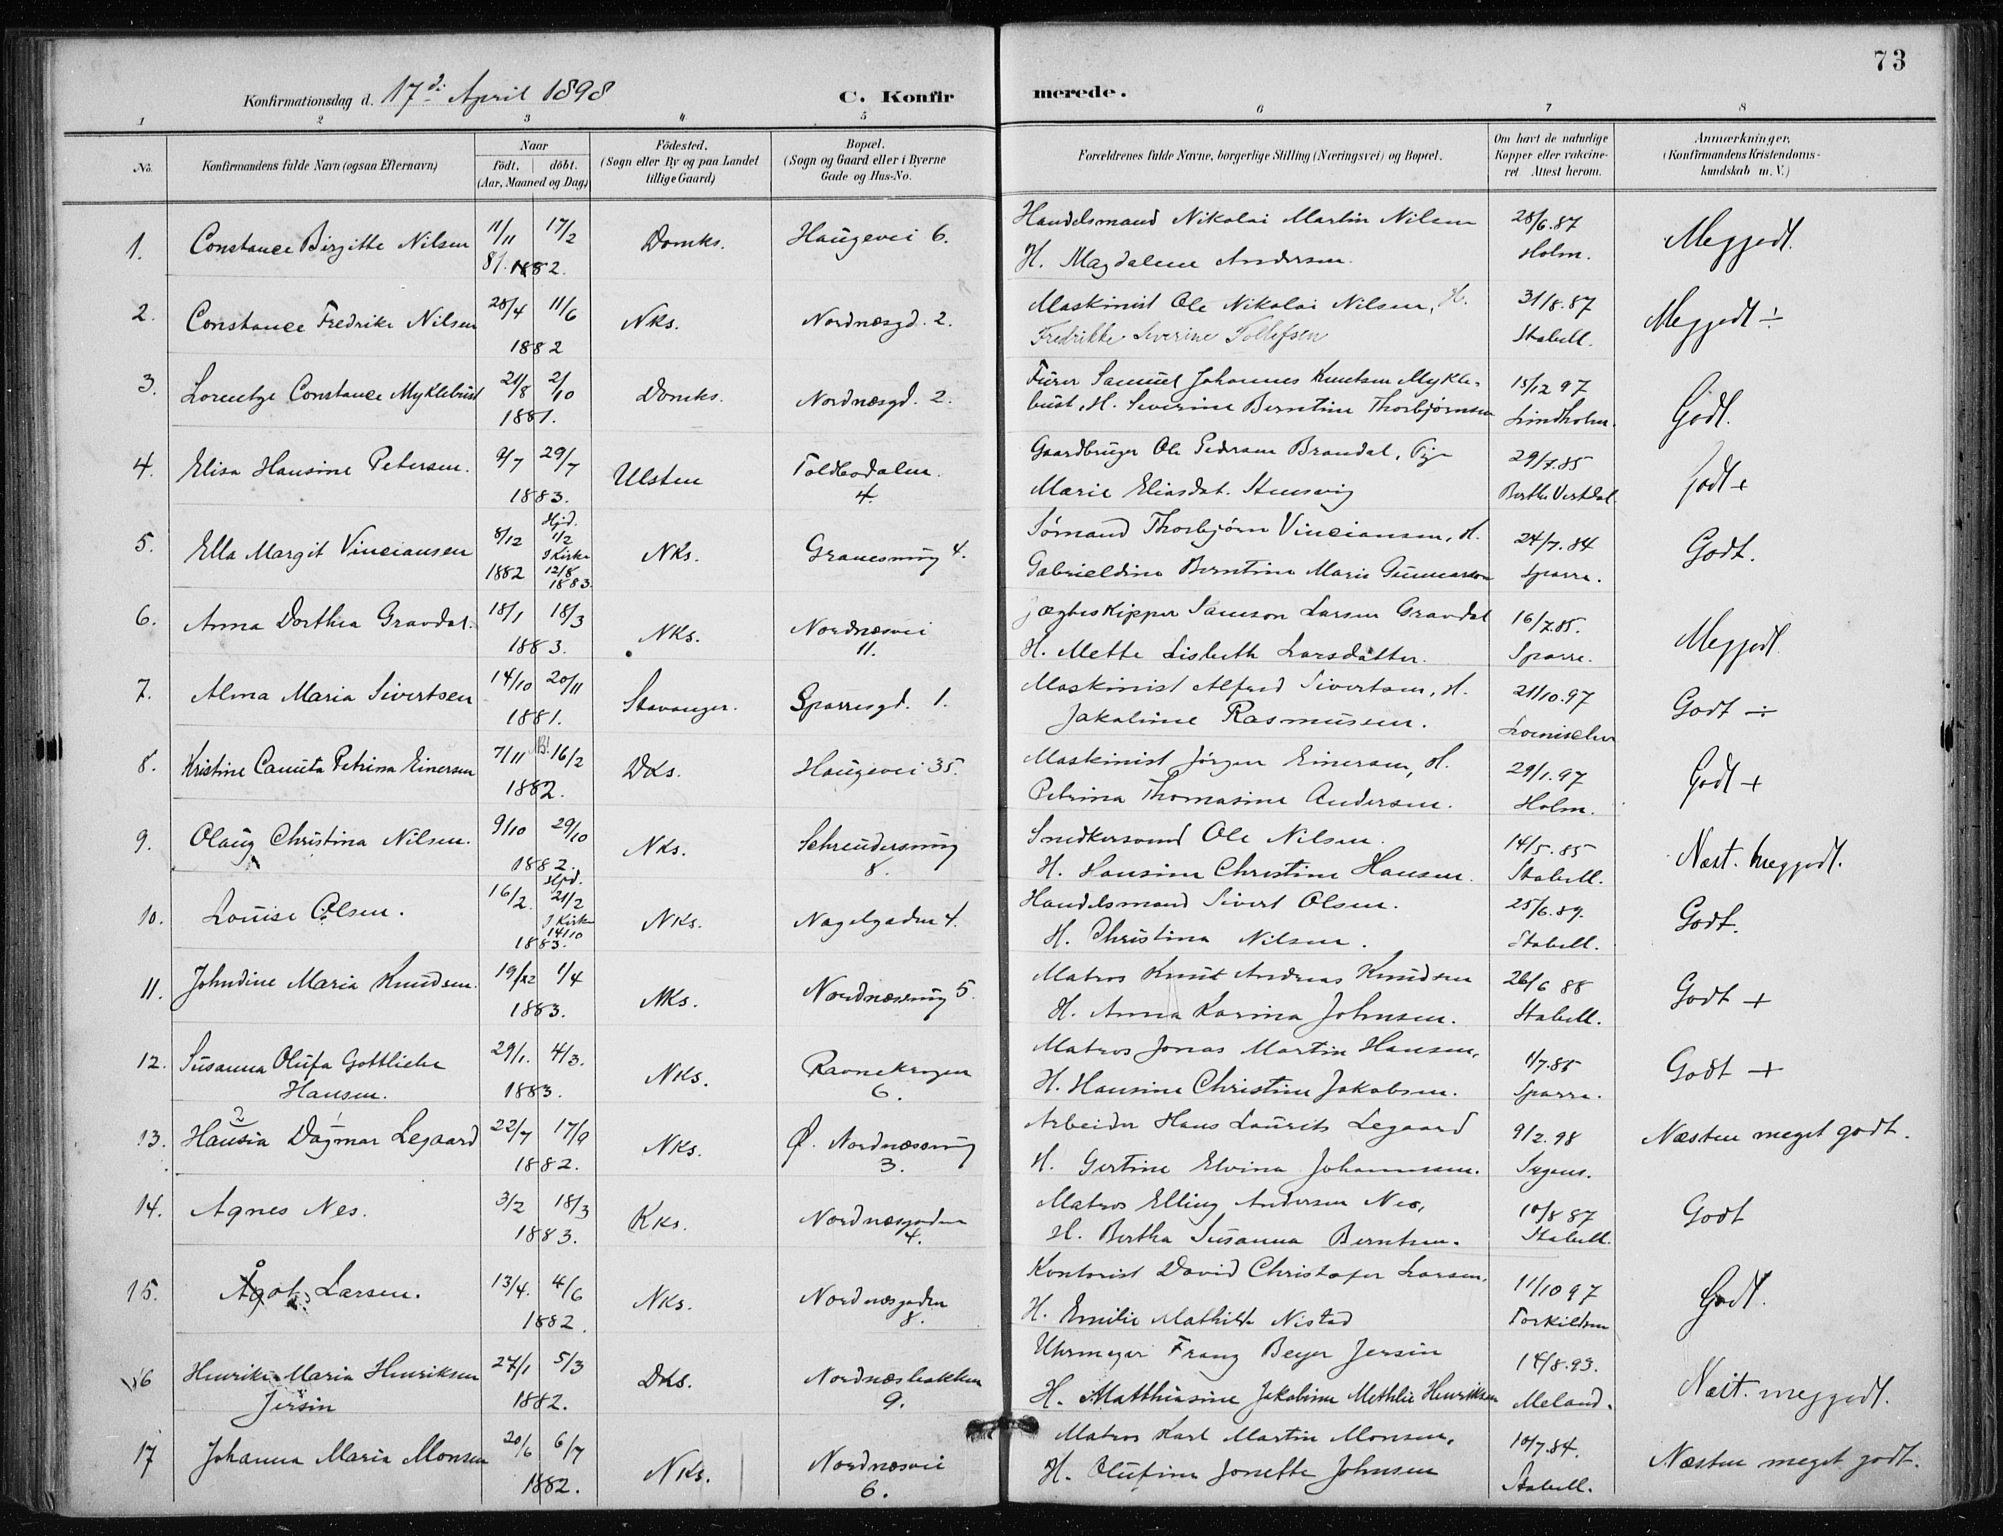 73
Konfirmationsdag d. 17de April 1898 C. Konfirmerede.
1 2 3 4 5 6 7 8
No. Konfirmandens fulde Navn (ogsaa Efternavn) Naar født. døbt. (Aar, Maaned og Dag) Fødested. (Sogn eller By og paa Landet tillige Gaard) Bopæl. (Sogn og Gaard eller i Byerne Gade og Hus-No. Forældrenes fulde Navne, borgerlige Stilling (Næringsvei) og Bopæl. Om havt de naturlige Kopper eller vakcineret. Attest herom. Anmærkninger, (Konfirmandens Kristendomskundskab m. V.)
1. Constance Birgitte Nilsen 11/11 81. 17/2 1882. Domks. Haugevei 6. Handelsmand Nikolai Martin Nilsen 28/6.87 Meg. godt.
H. Magdalene Andersen. Holm.
2. Constance Fredrike Nilsen 28/4 11/6 Nks. Nordnæsgd. 2. Maskinist Ole Nikolai Nilsen, H. 31/8.87 Meg godt ÷
1882 Fredrikke Severine Tollefsen Stabell.
3. Lorentze Constance Myklebust 21/8 2/10 Domks. Nordnæsgd. 2. Furer Samuel Johannes Knutsen Mykle- 15/12 97 Godt.
1881. bust, H. Severine Berntine Thorbjørnsen Lindholm.
4. Elisa Hansine Petersen. 9/7 29/7 Ulsten Toldbodalm. Gaardbruger Ole Pedersen Brandal, Pige 29/7.85 Godt +
1883. 4. Marie Eliasdat. Stensvig Berthe Vestdal
5. Ella Margit Vinciansen 8/12 Hjd. 1/2 Nks. Granesmug 4. Sømand Thorbjørn Vinciansen, H. 24/7.84 Godt.
1882 I Kirke 12/8 1883. Gabrieldine Berntine Marie Gunnarson Sparre.
6. Anna Dorthea Gravdal. 18/1 18/3 Nks. Nordnæsvei Jægteskipper Samson Larsen Gravdal 16/7.85. Meg godt.
1883. 11. H. Mette Lisbeth Larsdatter. Sparre.
7. Alma Maria Sivertsen 14/10 20/11 Stavanger. Sparresgd. 1. Maskinist Alfred Sivertsen, H. 21/10.97 Godt ÷
1881. Jakobine Rasmussen.
8. Kristine Camita Petrina Einersen 7/11 NB! 16/2 Dks. Haugevei 35. Maskinist Jørgen Einersen, H. 29/1.97 Godt +
1882. Petrina Thomasine Andersen. Holm.
9. Olaug Christina Nilsen. 9/10 29/10 Nks. Schreudersmug Snedkersvend Ole Nilsen. 14/5.85 Næst. meg godt.
1882. 8. H. Hansine Christine Hansen. Stabell.
10. Louise Olsen. 16/2 Hjd. 21/2 Nks. Nagelgaden 4. Handelsmand Sivert Olsen. 25/6.89. Godt.
I Kirke 14/10 1883. H. Christina Nilsen. Stabell.
11. Johndine Maria Knudsen. 19/12 1/4 Nks. Nordnæssmug 5. Matros Knut Andreas Knudsen 26/6 88 Godt +
1883. H. Anna Karina Johnsen. Stabell.
12. Susanna Olufa Gottliebe 29/1. 4/3. Nks. Ravnekrogen Matros Jonas Martin Hansen, 1/7.85 Godt +
Hansen. 1883. 6. H. Hansine Christine Jakobsen. Sparre.
13. Hansia Dagmar Legaard 22/7 17/9 Nks. Ø. Nordnæssmug Arbeider Hans Laurits Legaard 9/2.98 Næsten meget godt.
1882. 3. H. Gertine Elvina Johannesen. Sygehs.
14. Agnes Nes. 3/2 18/3 Kks. Nordnæsgaden Matros Elling Andersen Nes, 10/8 87 Godt
1883. 4. H. Bertha Susanna Berntsen. Stabell.
15. Ågot Larsen. 13/4. 4/6 Nks. Nordnæsgaden Kontorist David Christofer Larsen, 11/10 97 Godt.
1882. 8. H. Emilie Mathilde Nistad Torkildsen
16 Henrikke Maria Henriksen 27/1 5/3 Dks. Nordnæsbakken Uhrmager Franz Beyer Jersin 14/8.93. Næst. meg godt.
Jersin 1882. 9. H. Matthiasine Jakobine Methlie Henriksen Meland.
17 Johanna Maria Monsen 20/6 6/7 Nks. Nordnæsvei Matros Karl Martin Monsen, 10/7.84. Næsten meget godt.
1882. 6. H. Olufine Jonette Johnsen Stabell.